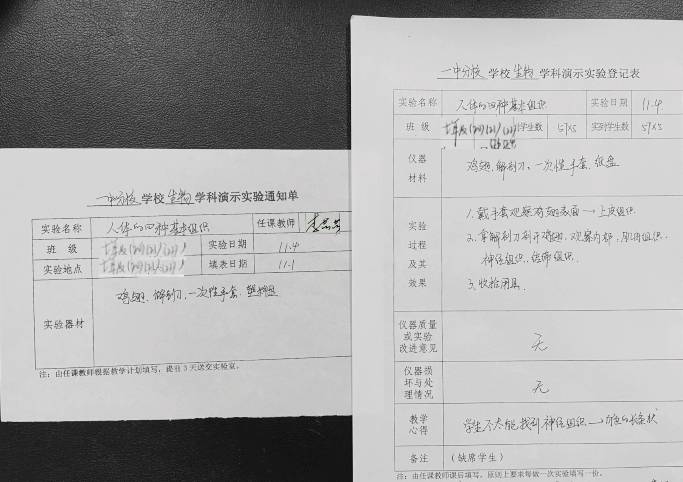 一中分校 学校 生物 学科演示实验通知单
实验名称 人体的四种基本组织 任课教师
班 级 实验日期 11.4
实验地点 填表日期 11.1
实验器材 鸡翅、解剖刀、一次性手套、塑料盘
注：由任课教师根据教学计划填写，提前3天送交实验室。
一中分校 学校 生物 学科演示实验登记表
实验名称 人体的四种基本组织 实验日期 11.4
班 级 学生数 57×5 实到学生数 57×5
仪器材料 鸡翅、解剖刀、一次性手套、纸盘
实验过程及其效果
1. 戴手套观察鸡翅表面→上皮组织
2. 拿解剖刀剖开鸡翅，观察 肌肉组织、
神经组织、结缔组织。
3. 收拾用具
仪器质量或实验改进意见 无
仪器损坏与处理情况 无
教学心得 学生不太能找到神经组织→ 白色的长条状
备注 （缺席学生）
注：由任课教师课后填写，原则上要求每做一次实验填写一份。